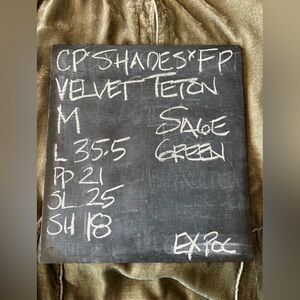 CP*SHADES*FP
VELVET TETON
M SAGE
L 35.5 GREEN
PP 21
SL 25
SH 18
EX POC